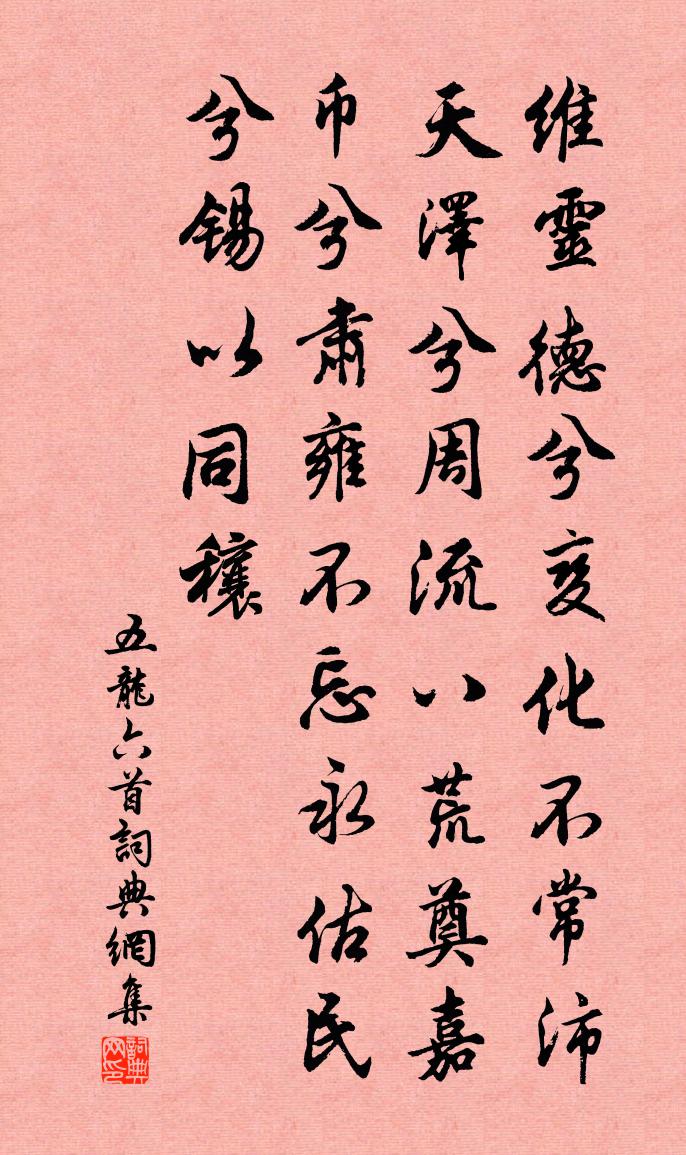 維靈德兮变化不常沛
天澤兮周流八荒奠嘉
币兮肅雍不忘永估民
兮錫以同穰
五龍六首詞典網集
詞典网印